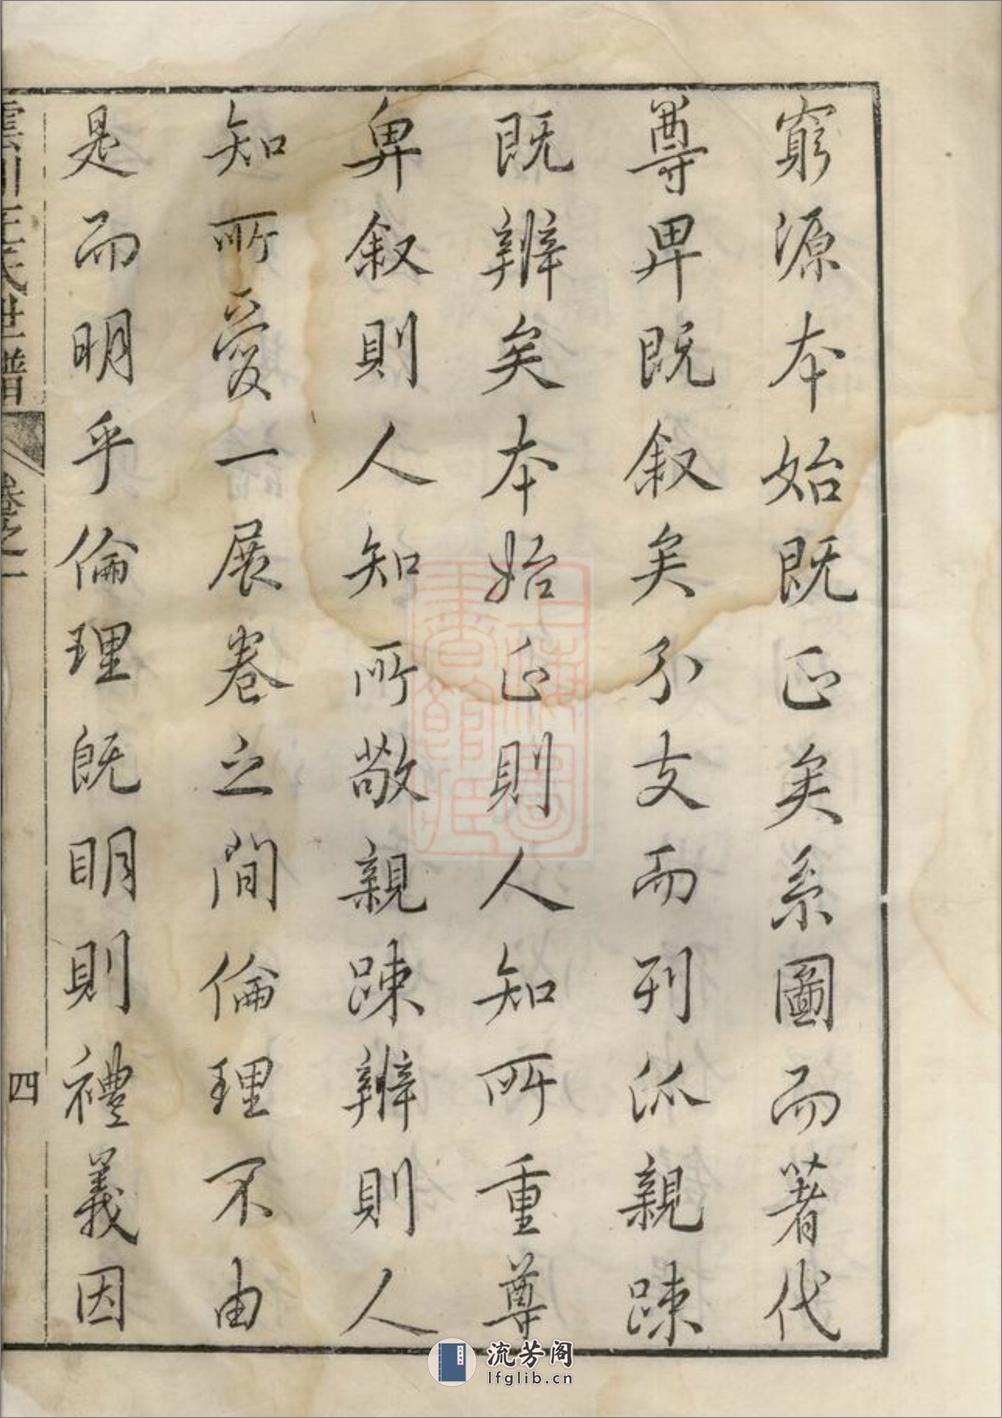 窮源本始既正矣系圖而著代
尊卑既叙矣分支而列派親踈
既辨矣本始正則人知所重尊
卑叙則人知所敬親踈辨則人
知所愛一展卷之間倫理不由
是而明乎倫理既明則禮義因
王氏世譜
卷之一
四
流芳阁
lfglib.cn